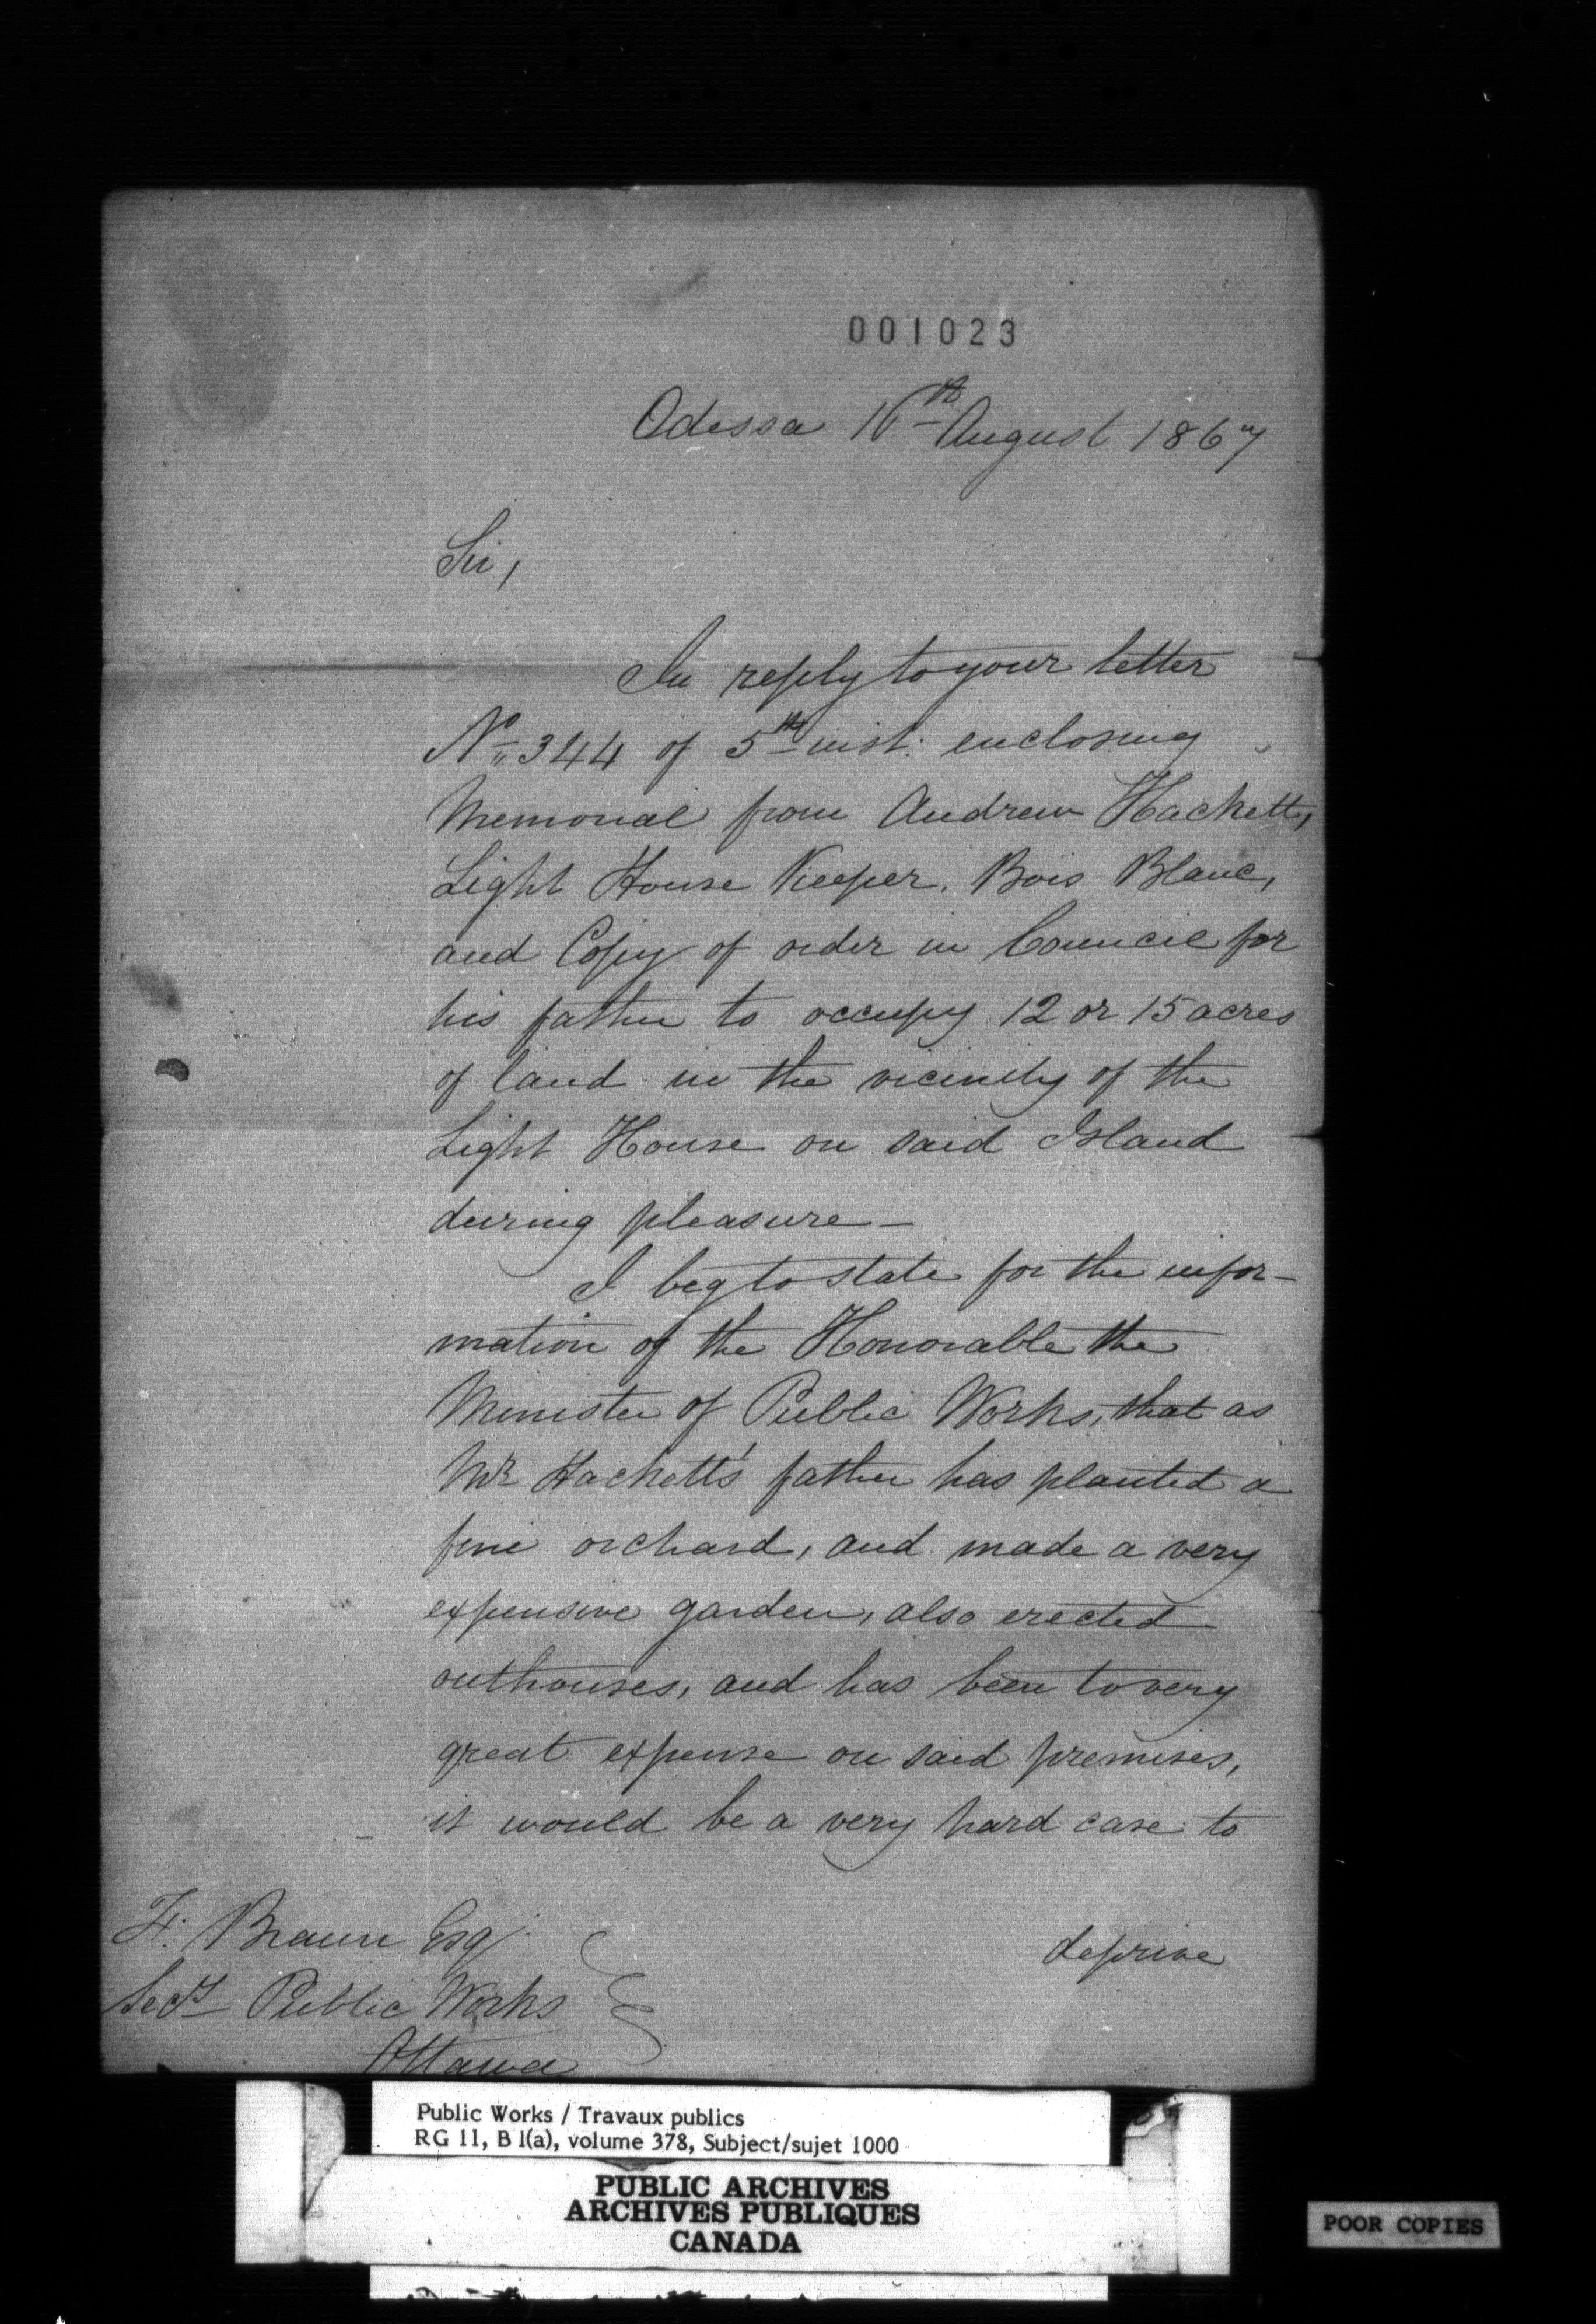 001023
Odessa 16th August 1867
Sir,
In reply to your letter
No. 344 of 5th inst: enclosing
Memorial from Andrew Hackett,
Light House Keeper, Bois Blanc,
and Copy of order in Council for
his father to occupy 12 or 15 acres
of land in the vicinity of the
Light House on said Island
during pleasure —
I beg to state for the infor-
mation of the Honorable the
Minister of Public Works, that as
Mr Hackett's father has planted a
fine orchard, and made a very
expensive garden, also erected
outhouses, and has been to very
great expense on said premises,
it would be a very hard case to
deprive
F. Braun Esq
Secy Public Works
Ottawa
Public Works / Travaux publics
RG 11, B 1(a), volume 378, Subject/sujet 1000
PUBLIC ARCHIVES
ARCHIVES PUBLIQUES
CANADA
POOR COPIES